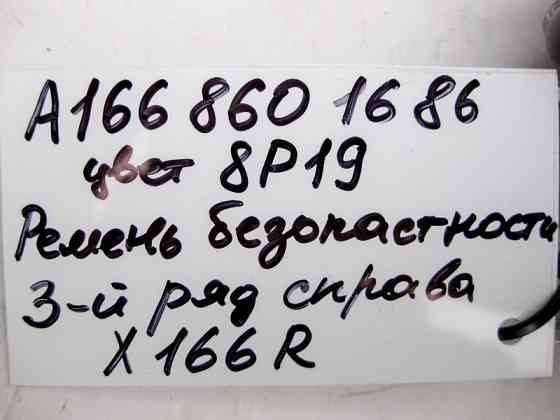 A166 860 16 86
цвет 8P19
Ремень безопастности
3-й ряд справа
X166 R